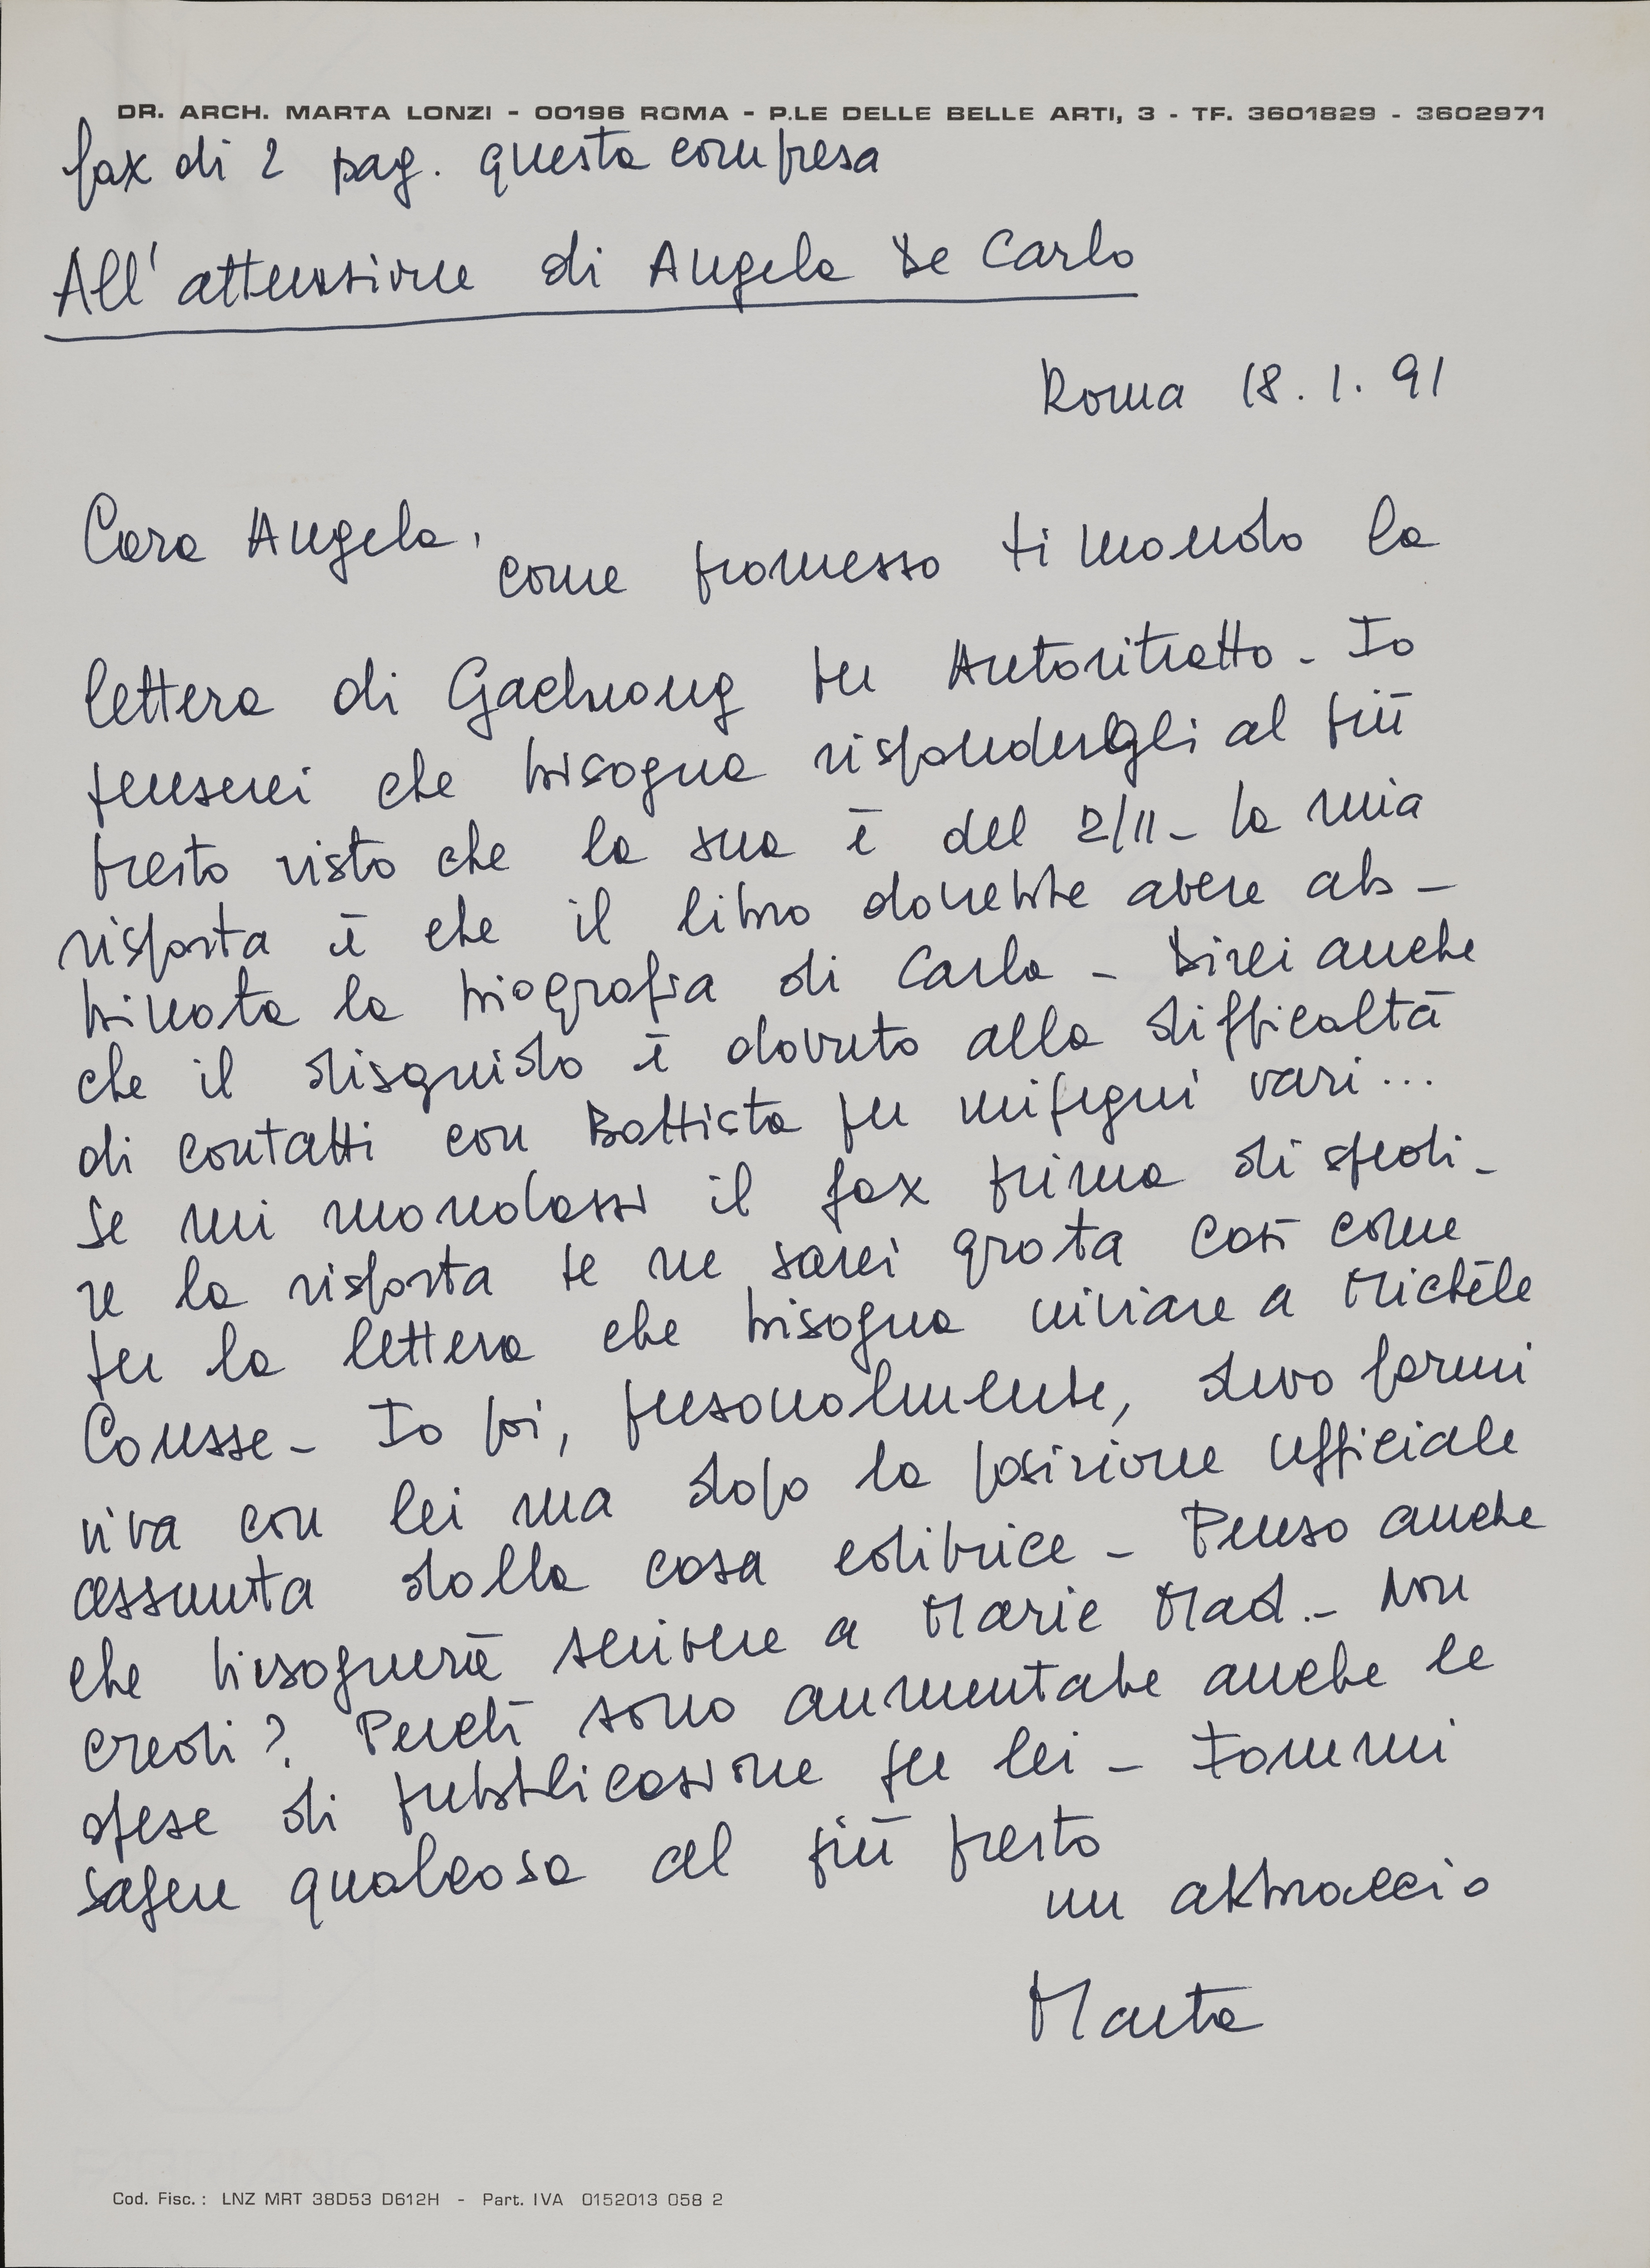 DR. ARCH. MARTA LONZI - 00196 ROMA - P.LE DELLE BELLE ARTI, 3 - TF. 3601829 - 3602971
fax di 2 pag. questa compresa
All'attenzione di Angela De Carlo
Roma 18.1.91
Cara Angela,
come promesso ti mando la
lettera di Gachnang per Autoritratto - Io
penserei che bisogna rispondergli al più
presto visto che la sua è del 2/11 - la mia
risposta è che il libro dovrebbe avere ab-
binata la biografia di Carla - Direi anche
che il disguido è dovuto alla difficoltà
di contatti con Battista per impegni vari...
Se mi mandassi il fax prima di spedi-
re la risposta te ne sarei grata così come
per la lettera che bisogna inviare a Michèle
Causse - Io poi, personalmente, devo farmi
viva con lei ma dopo la posizione ufficiale
assunta dalla casa editrice - Penso anche
che bisognerà scrivere a Marie Mad. - Non
credi? Perché sono aumentate anche le
spese di pubblicazione per lei - Fammi
sapere qualcosa al più presto
un abbraccio
Marta
Cod. Fisc.: LNZ MRT 38D53 D612H - Part. IVA 0152013 058 2